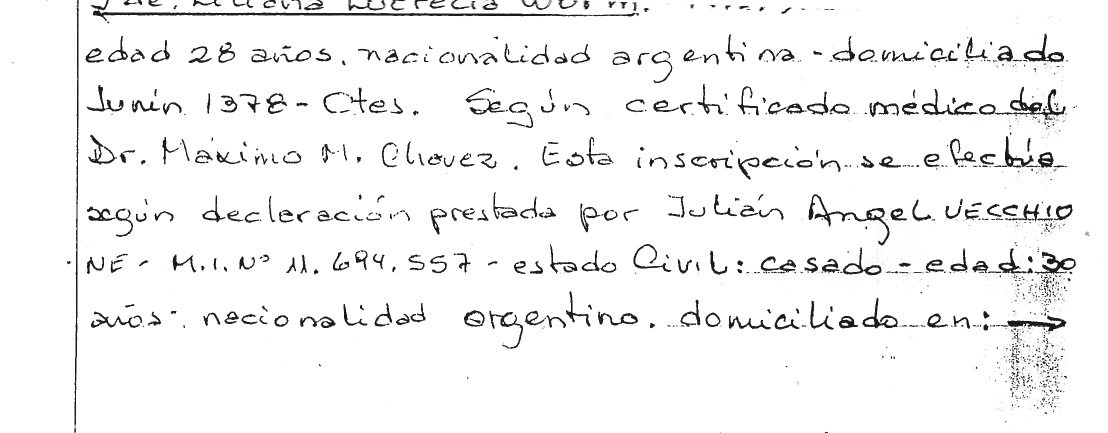 edad 28 años. nacionalidad argentina - domiciliado
Junín 1378 - Ctes. Según certificado médico del
Dr. Máximo M. Chavez. Esta inscripción se efectúa
según declaración prestada por Julián Angel VECCHIO
NE - M.I. Nº 11.694.557 - estado Civil: casado - edad: 30
años. nacionalidad argentino. domiciliado en: →